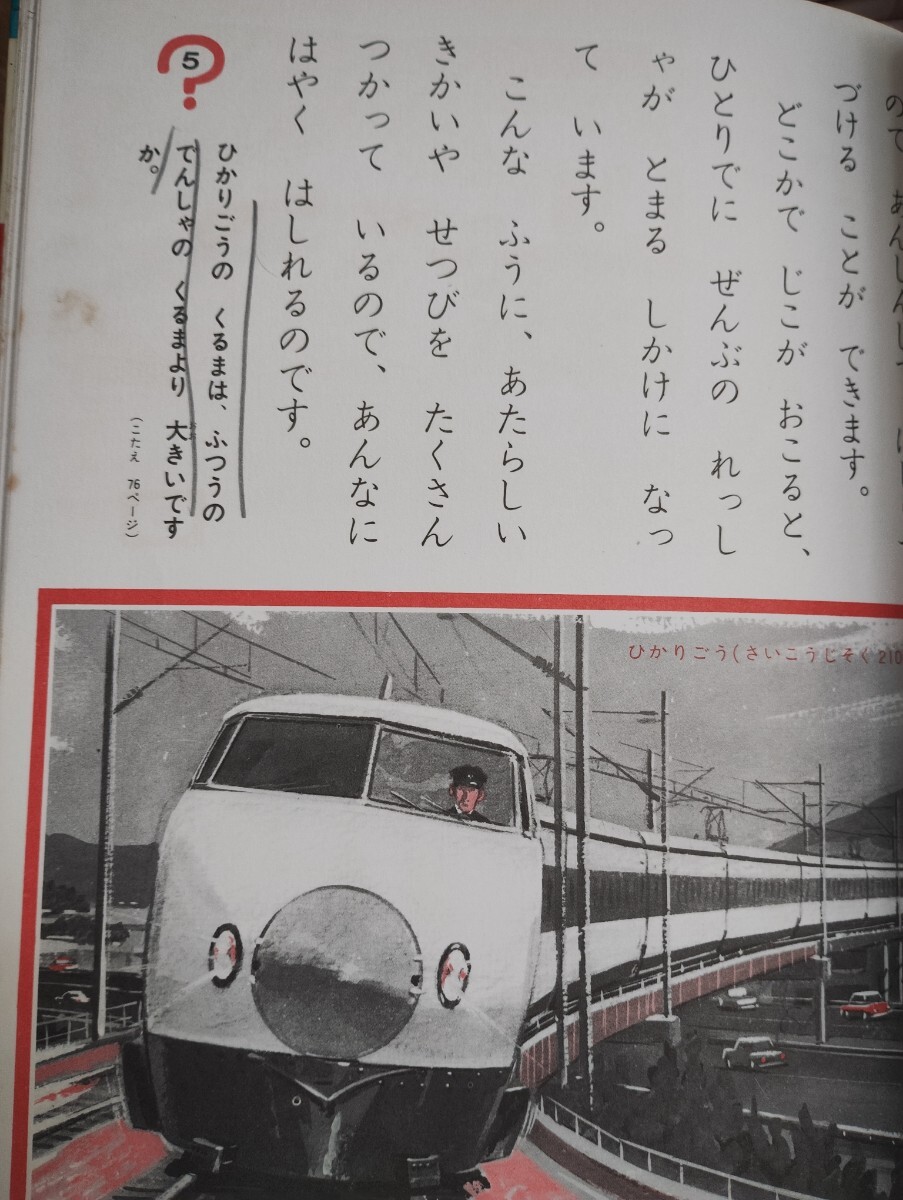 づける ことが できます。
どこかで じこが おこると、
ひとりでに ぜんぶの れっし
ゃが とまる しかけに なっ
て います。
こんな ふうに、あたらしい
きかいや せつびを たくさん
つかって いるので、あんなに
はやく はしれるのです。
5
ひかりごうの くるまは、ふつうの
でんしゃの くるまより 大きいです
か。
(こたえ 76ページ)
ひかりごう(さいこうじそく210